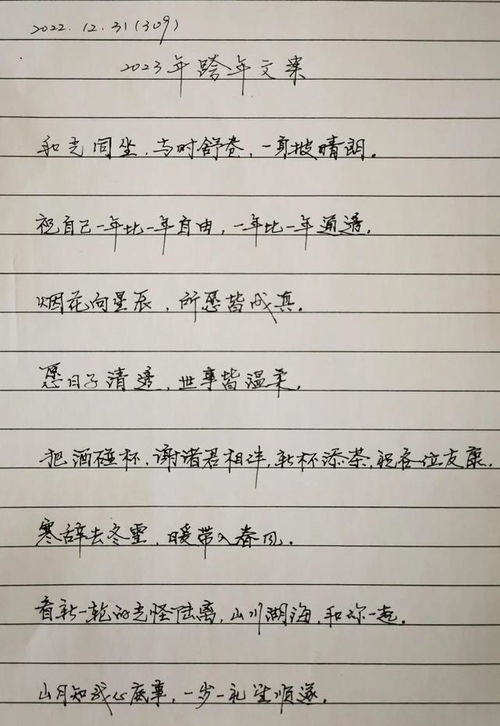 2022.12.31(309)
2023年跨年文案
和光同坐,与时舒卷,一身披晴朗。
祝自己一年比一年自由,一年比一年通透。
烟花向星辰,所愿皆成真。
愿日子清透,世事皆温柔。
把酒碰杯,谢诸君相伴,新杯添茶,祝各位友康.
寒辞去冬雪,暖带入春风。
看新一轮的光怪陆离,山川湖海,和你一起。
山月知我心底事,一步一礼皆顺遂。